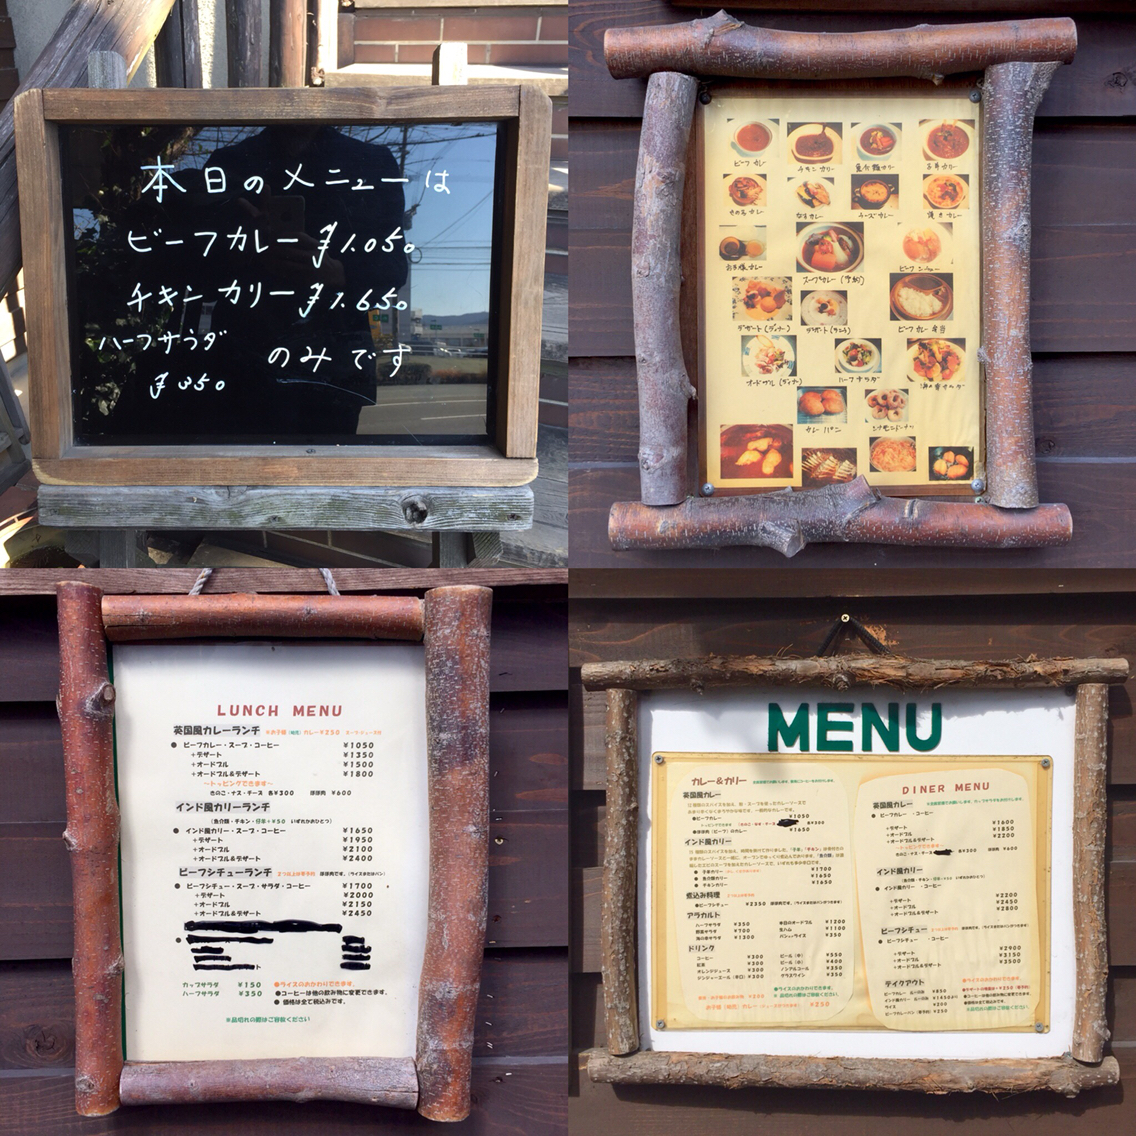 本日のメニューは
ビーフカレー ¥1.050
チキンカリー ¥1.650
ハーフサラダ のみです
¥350
ビーフカレー
チキンカリー
きのこカレー
なすカレー
チーズカレー
お子様カレー
スープカレー(予約)
ビーフシチュー
デザート(ディナー)
デザート(ランチ)
ビーフカレー弁当
オードブル(ディナー)
ハーフサラダ
海の幸サラダ
カレーパン
シナモンドーナツ
LUNCH MENU
英国風カレーランチ
● ビーフカレー・スープ・コーヒー ¥1050
+デザート ¥1350
+オードブル ¥1500
+オードブル&デザート ¥1800
～トッピングできます～
きのこ・ナス・チーズ 各¥300 ほほ肉 ¥600
インド風カリーランチ
(魚介類・チキン・仔羊+¥50 いずれかひとつ)
● インド風カリー・スープ・コーヒー ¥1650
+デザート ¥1950
+オードブル ¥2100
+オードブル&デザート ¥2400
ビーフシチューランチ
● ビーフシチュー・スープ・サラダ・コーヒー ¥1700
+デザート ¥2000
+オードブル ¥2150
+オードブル&デザート ¥2450
カップサラダ ¥150
ハーフサラダ ¥350
●ライスのおかわりできます。
●コーヒーは他の飲み物に変更できます。
● 価格は全て税込みです。
※品切れの際はご容赦ください
MENU
カレー&カリー
英国風カレー
●ビーフカレー ¥1050
●ほほ肉(ビーフ)のカレー ¥1650
インド風カリー
● 子羊カリー ¥1700
● 魚介類カリー ¥1650
● チキンカリー ¥1650
煮込み料理
●ビーフシチュー ¥2350
アラカルト
ハーフサラダ ¥350
野菜サラダ ¥700
海の幸サラダ ¥1300
本日のオードブル ¥1200
生ハム ¥1100
ライス ¥350
ドリンク
コーヒー ¥300
紅茶 ¥300
オレンジジュース ¥300
ジンジャーエール(辛口) ¥300
ビール(中) ¥550
ビール(小) ¥400
ノンアルコール ¥350
グラスワイン ¥350
DINER MENU
英国風カレー
● ビーフカレー ・コーヒー ¥1600
+デザート ¥1850
+オードブル ¥2200
インド風カリー
● インド風カリー ・コーヒー ¥2200
+デザート ¥2450
+オードブル ¥2800
ビーフシチュー
● ビーフシチュー ・コーヒー ¥2900
+デザート ¥3150
+オードブル ¥3500
テイクアウト
ライス ¥200